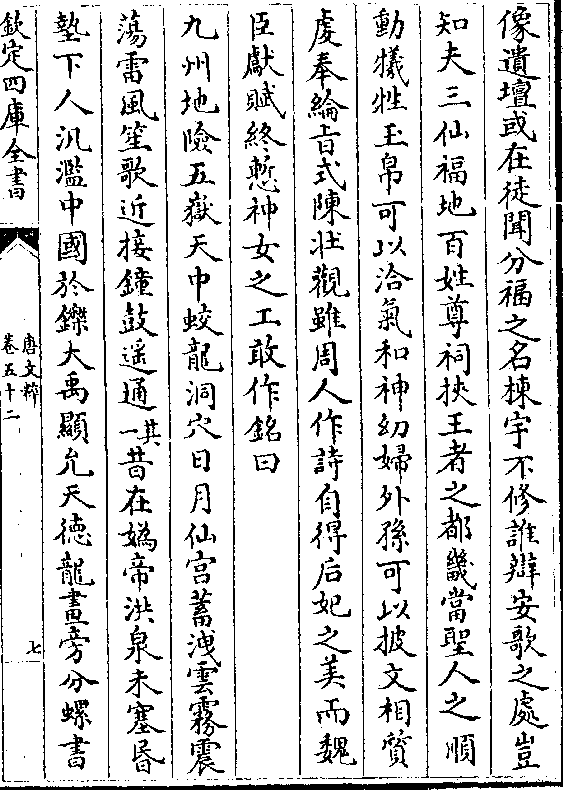 像遺壇或在徒聞分福之名棟宇不修誰辯安歌之處豈
知夫三仙福地百姓尊祠挾王者之都畿當聖人之順
動犧牲玉帛可以洽氣和神幼婦外孫可以披文相質
虔奉綸旨式陳壯觀雖周人作詩自得后妃之美而魏
臣獻賦終慙神女之工敢作銘曰
九州地險五嶽天中蛟龍洞穴日月仙宫蓄洩雲霧震
蕩雷風笙歌近接鐘鼓遥通其一昔在媯帝洪泉未塞昏
墊下人汎濫中國於鑠大禹顯允天德龍畫旁分螺書
欽定四庫全書
唐文粹
卷五十二
七